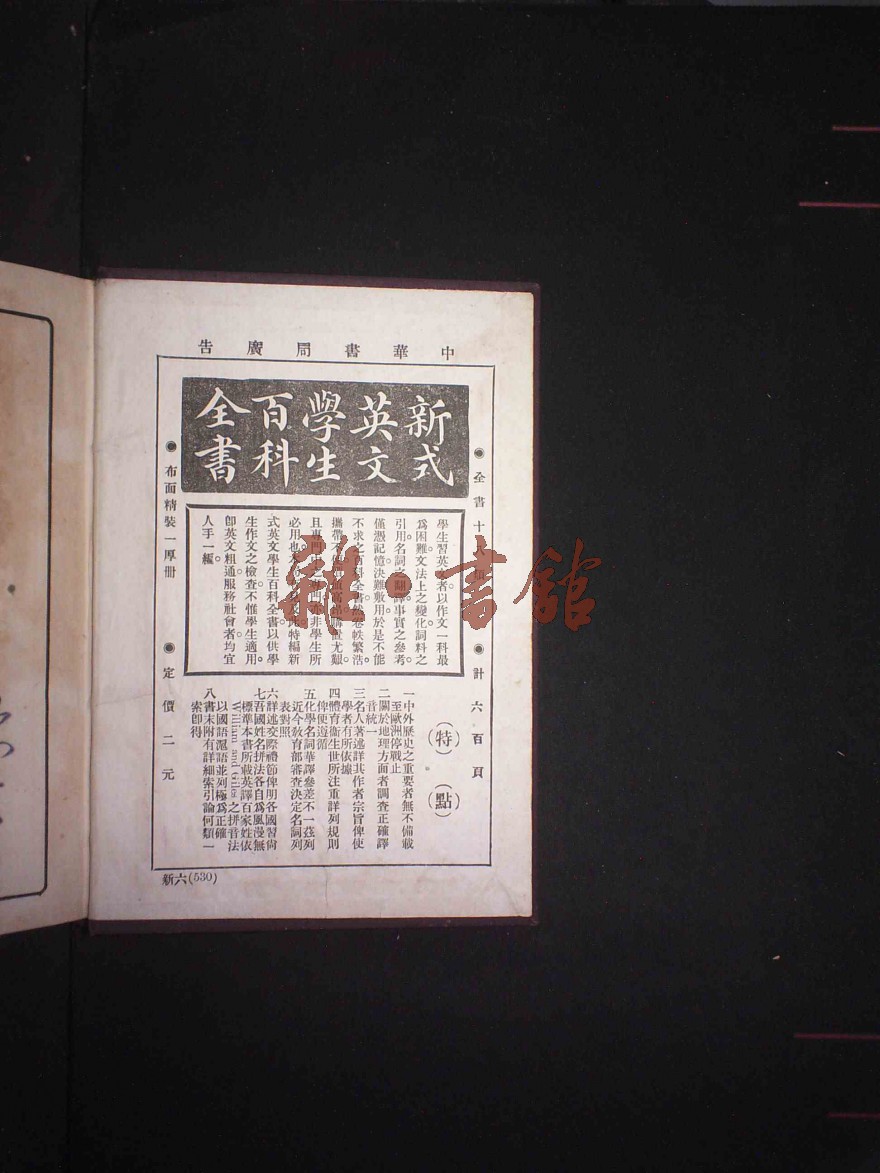 中華書局廣告
新式
英文
學生
百科
全書
●全書十八類　●計六百頁
學生習英文者以作文一科最
爲困難。文法上之變化詞料之
引用名詞之翻譯事實之參考。
僅憑記憶決難敷用於是不能
不求之百科全書然卷帙繁浩。
攜帶不便價值高昂購置尤艱。
且專門
亦非學生所
必用也
特編新
式英文學生百科全書以供學
生作文之檢查。不惟學生適用。
卽英文粗通服務社會者均宜
人手一編。
（特）（點）
一中外歷史之重要者無不備載
至歐洲停戰止
二關於地理方面者調查正確譯
音統一
三名人著述詳其作者宗旨俾使
學者有所依據
四體育衞生世所注重詳列規則
俾便遵循
五化學名詞華譯參差不一茲列
近今敎育部審查決定名詞列
表對照
六詳述交際禮節俾明各國習尙
七吾國姓名拼法各自爲風漫無
標準本書所載英譯百家姓依
William and Giles之拼音法
以國語滬語並列極爲正確
八書末附有詳細索引論何類一
索卽得
●布面精裝一厚册　●定價二元
新六(530)
雜·書館